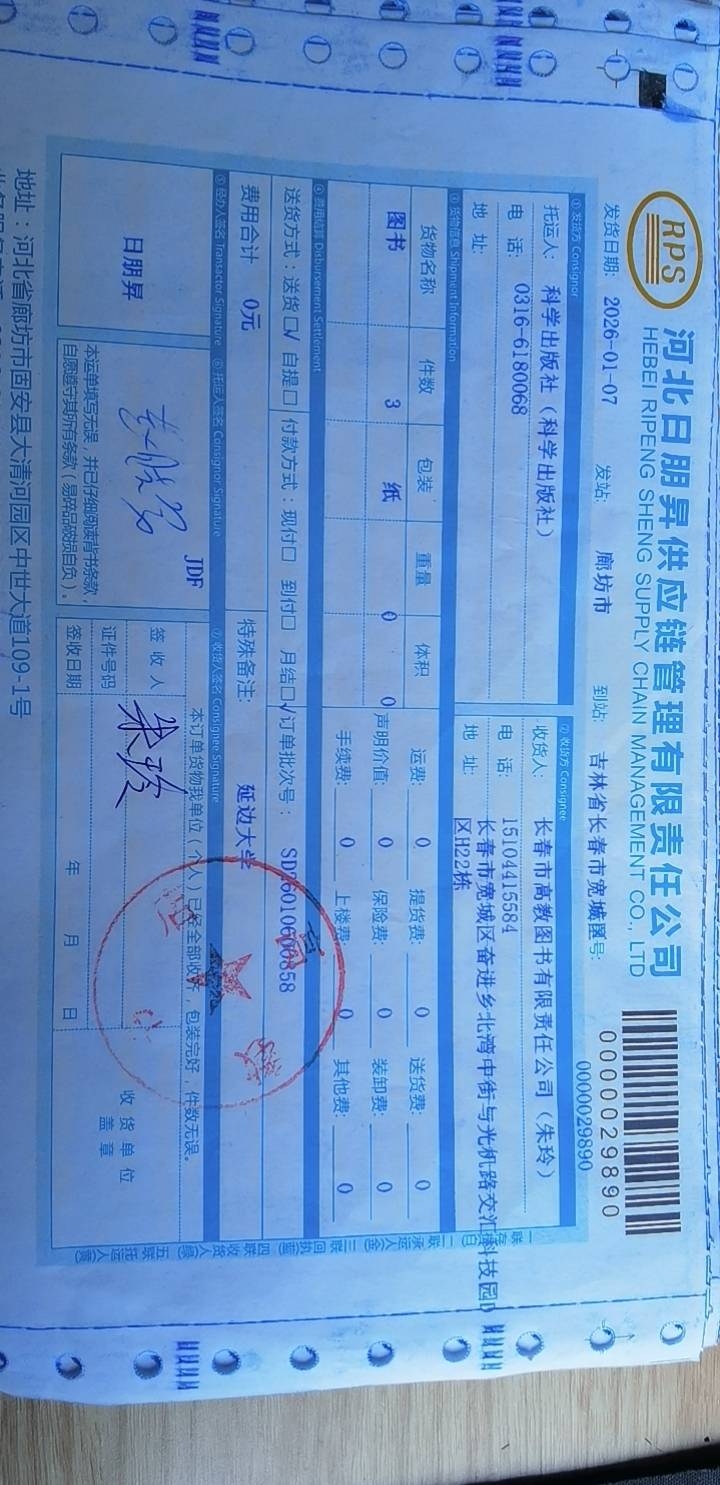 RPS
河北日朋昇供应链管理有限责任公司
HEBEI RIPENG SHENG SUPPLY CHAIN MANAGEMENT CO., LTD
0000029890
0000029890
发货日期: 2026-01-07 发站: 廊坊市 到站: 吉林省长春市宽城区号:
①发货方 Consignor ②收货方 Consignee
托运人: 科学出版社（科学出版社） 收货人: 长春市高教图书有限责任公司（朱玲）
电 话: 0316-6180068 电 话: 15104415584
地 址: 地 址: 长春市宽城区奋进乡北湾中街与光机路交汇科技园D
区H22栋
③货物信息 Shipment Information
货物名称 件数 包装 重量 体积 运费: 0 提货费: 0 送货费: 0
图书 3 纸 0 0 声明价值: 0 保险费: 0 装卸费: 0
手续费: 0 上楼费: 0 其他费: 0
④费用结算 Disbursement Settlement
送货方式：送货☐√ 自提☐ 付款方式：现付☐ 到付☐ 月结☐√ 订单批次号： SD26010600858
费用合计 0元 特殊备注: 延边大学
⑤经办人签名 Transactor Signature ⑥托运人签名 Consignor Signature ⑦收货人签名 Consignee Signature
日朋昇
JDF
本运单填写无误，并已仔细阅读背书条款，
自愿遵守其所有条款（易碎品破损自负）。
本订单货物我单位（个人）已经全部收好，包装完好，件数无误。
签 收 人 朱玲
证件号码
签收日期 年 月 日
收货单位
盖 章
一联存根(白) 二联承运人(金) 三联回执(蓝) 四联收货人(绿) 五联托运人(黄)
地址：河北省廊坊市固安县大清河园区中世大道109-1号